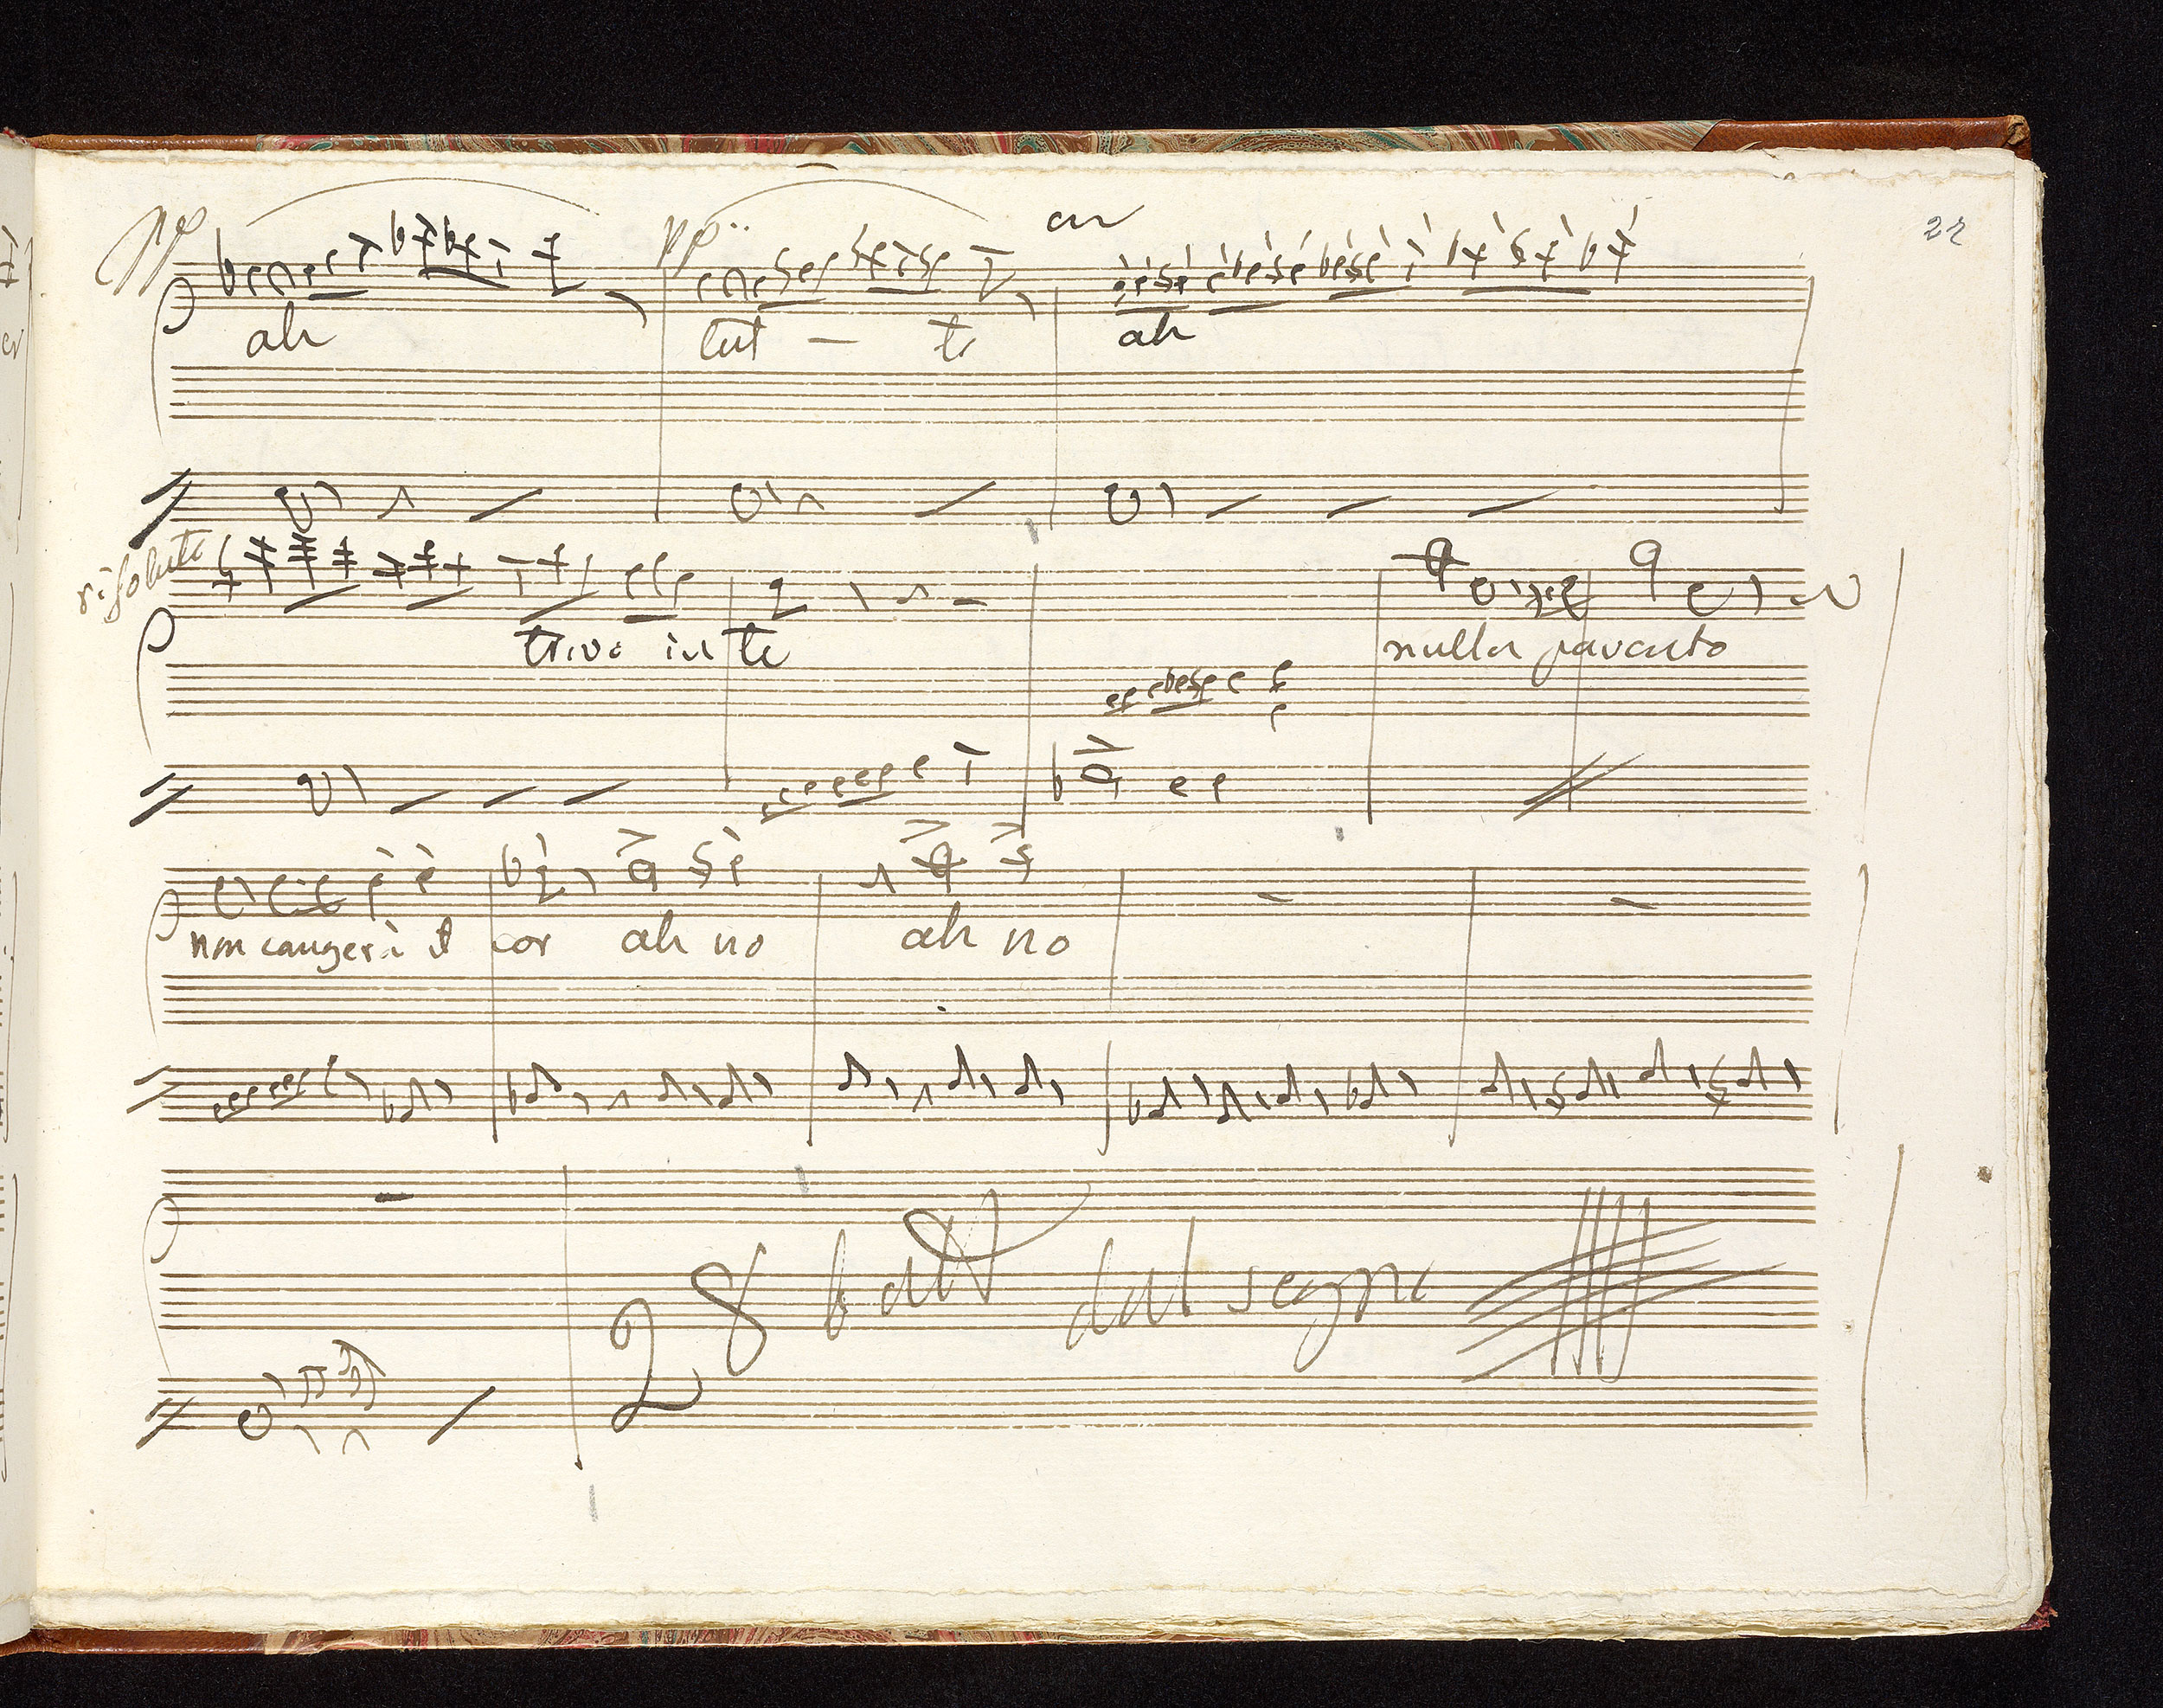 22
pp pp cr
ah tut - ti ah
risoluto
trovo in te nulla pavento
non cangerà il cor ah no ah no
28 batt dal segno